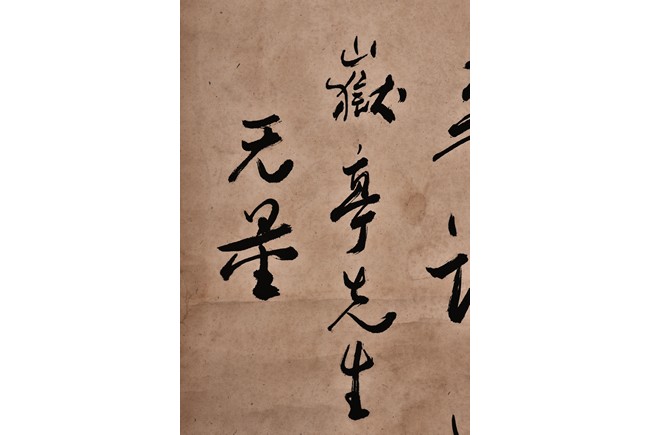 嶽亭先生
无量